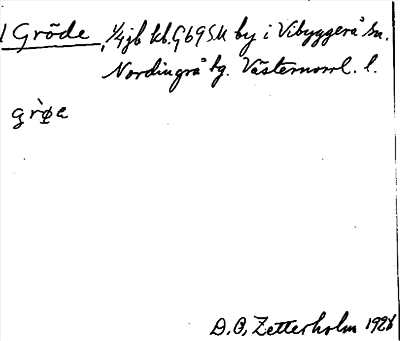 1 Gröde, 1/4 jb kb. G69SU by i Vibyggerå sn.
Nordingrå tg. Västernorrl. l.
grø̀a
D. O. Zetterholm 1926